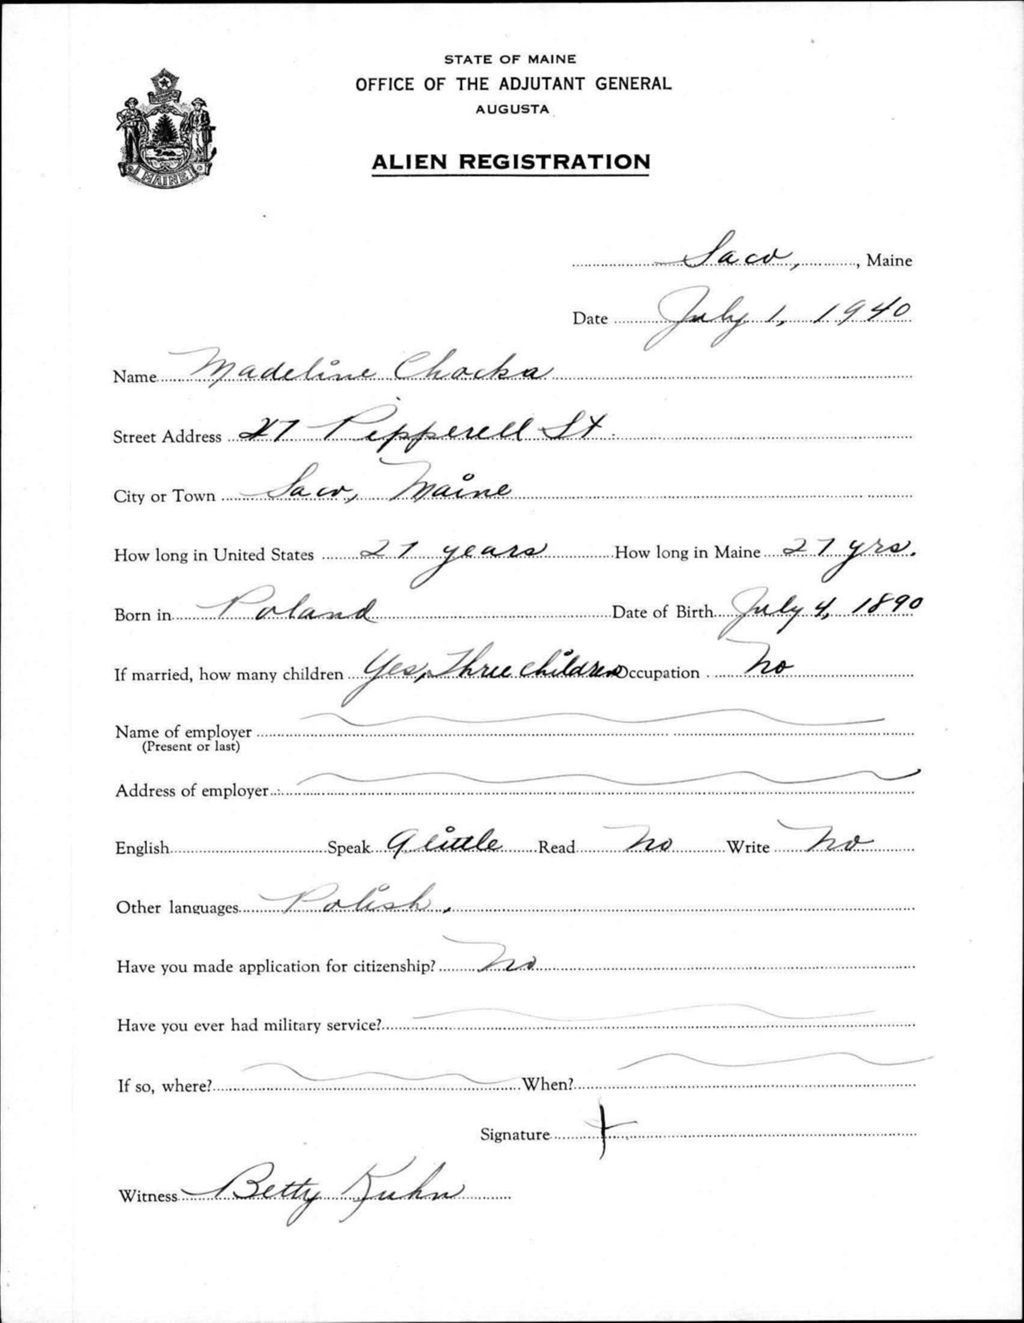 STATE OF MAINE
OFFICE OF THE ADJUTANT GENERAL
AUGUSTA
MAINE
ALIEN REGISTRATION
Saco, , Maine
Date July 1, 1940
Name Madeline Chocka
Street Address 27 Pepperell St.
City or Town Saco, Maine
How long in United States 27 years How long in Maine 27 yrs.
Born in Poland Date of Birth July 4, 1890
If married, how many children Yes, Three children Occupation no
Name of employer
(Present or last)
Address of employer
English Speak A little Read No Write No
Other languages Polish.
Have you made application for citizenship? No
Have you ever had military service?
If so, where? When?
Signature +
Witness Betty Kuhn